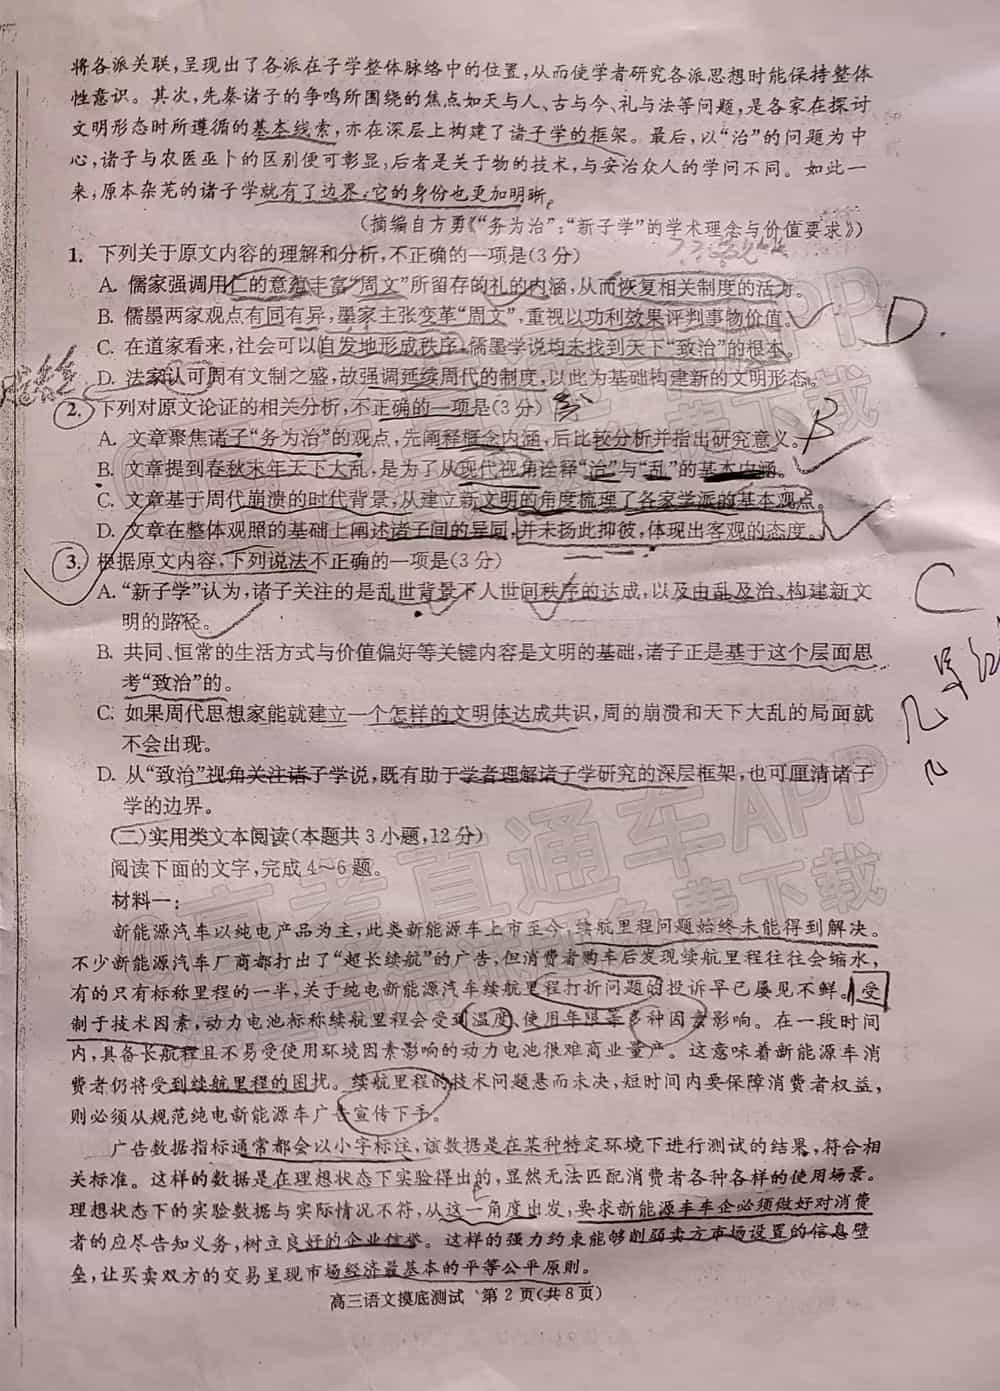 将各派关联,呈现出了各派在子学整体脉络中的位置,从而使学者研究各派思想时能保持整体
性意识。其次,先秦诸子的争鸣所围绕的焦点如天与人、古与今、礼与法等问题,是各家在探讨
文明形态时所遵循的基本线索,亦在深层上构建了诸子学的框架。最后,以“治”的问题为中
心,诸子与农医巫卜的区别便可彰显,后者是关于物的技术,与安治众人的学问不同。如此一
来,原本杂芜的诸子学就有了边界,它的身份也更加明晰。
(摘编自方勇《“务为治”:“新子学”的学术理念与价值要求》)
1. 下列关于原文内容的理解和分析,不正确的一项是(3分)
A. 儒家强调用仁的意蕴丰富“周文”所留存的礼的内涵,从而恢复相关制度的活力。
B. 儒墨两家观点有同有异,墨家主张变革“周文”,重视以功利效果评判事物价值。
C. 在道家看来,社会可以自发地形成秩序,儒墨学说均未找到天下“致治”的根本。
D. 法家认可周有文制之盛,故强调延续周代的制度,以此为基础构建新的文明形态。
D.
2. 下列对原文论证的相关分析,不正确的一项是(3分)
A. 文章聚焦诸子“务为治”的观点,先阐释概念内涵,后比较分析并指出研究意义。
B. 文章提到春秋末年天下大乱,是为了从现代视角诠释“治”与“乱”的基本内涵。
C. 文章基于周代崩溃的时代背景,从建立新文明的角度梳理了各家学派的基本观点。
D. 文章在整体观照的基础上阐述诸子间的异同,并未扬此抑彼,体现出客观的态度。
B
3. 根据原文内容,下列说法不正确的一项是(3分)
A. “新子学”认为,诸子关注的是乱世背景下人世间秩序的达成,以及由乱及治、构建新文
明的路径。
B. 共同、恒常的生活方式与价值偏好等关键内容是文明的基础,诸子正是基于这个层面思
考“致治”的。
C. 如果周代思想家能就建立一个怎样的文明体达成共识,周的崩溃和天下大乱的局面就
不会出现。
D. 从“致治”视角关注诸子学说,既有助于学者理解诸子学研究的深层框架,也可厘清诸子
学的边界。
C
(二)实用类文本阅读(本题共3小题,12分)
阅读下面的文字,完成4~6题。
材料一:
新能源汽车以纯电产品为主,此类新能源车上市至今,续航里程问题始终未能得到解决。
不少新能源汽车厂商都打出了“超长续航”的广告,但消费者购车后发现续航里程往往会缩水,
有的只有标称里程的一半,关于纯电新能源汽车续航里程打折问题的投诉早已屡见不鲜。受
制于技术因素,动力电池标称续航里程会受到温度、使用年限等多种因素影响。在一段时间
内,具备长航程且不易受使用环境因素影响的动力电池很难商业量产。这意味着新能源车消
费者仍将受到续航里程的困扰。续航里程的技术问题悬而未决,短时间内要保障消费者权益,
则必须从规范纯电新能源车广告宣传下手。
广告数据指标通常都会以小字标注,该数据是在某种特定环境下进行测试的结果,符合相
关标准。这样的数据是在理想状态下实验得出的,显然无法匹配消费者各种各样的使用场景。
理想状态下的实验数据与实际情况不符,从这一角度出发,要求新能源车车企必须做好对消费
者的应尽告知义务,树立良好的企业信誉。这样的强力约束能够削弱卖方市场设置的信息壁
垒,让买卖双方的交易呈现市场经济最基本的平等公平原则。
高三语文摸底测试 第2页(共8页)